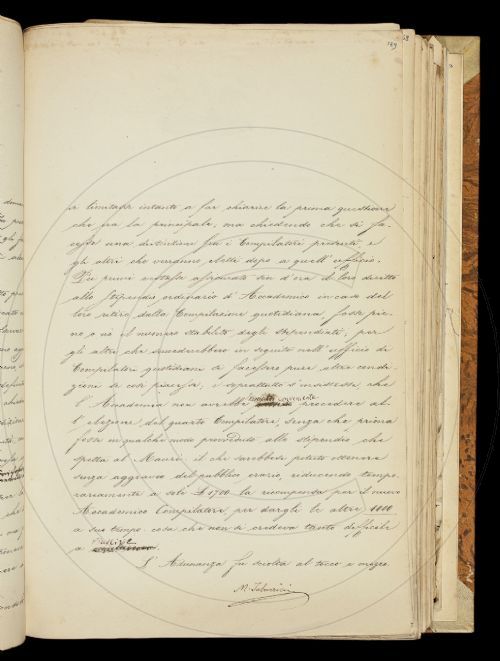 189
si limitasse intanto a far chiarire la prima questione
che era la principale, ma chiedendo che si fa-
cesse una distinzione fra i Compilatori presenti, e
gli altri che verranno eletti dopo a quell'ufficio.
Pei primi restasse assicurato fin d'ora il loro diritto
allo stipendio ordinario d'Accademico in caso del
loro ritiro dalla Compilazione quotidiana, fosse pie-
no o no il numero stabilito degli stipendiati; per
gli altri che succederebbero in seguito nell'ufficio di
Compilatori quotidiani si facessero pure altre condi-
zioni se così piaceva, e soprattutto s'insistesse, che
l'Accademia non avrebbe conveniente procedere al-
l'elezione del quarto Compilatore, senza che prima
fosse in qualche modo provveduto allo stipendio che
spetta al Mauri: il che sarebbesi potuto ottenere
senza aggravio del pubblico erario, riducendo tempo-
rariamente a sole £ 1700 la ricompensa per il nuovo
Accademico Compilatore, per dargli le altre
a suo tempo: cosa che non si credeva tanto difficile
a
L'Adunanza fu sciolta al tocco e mezzo.
M. Tabarrini